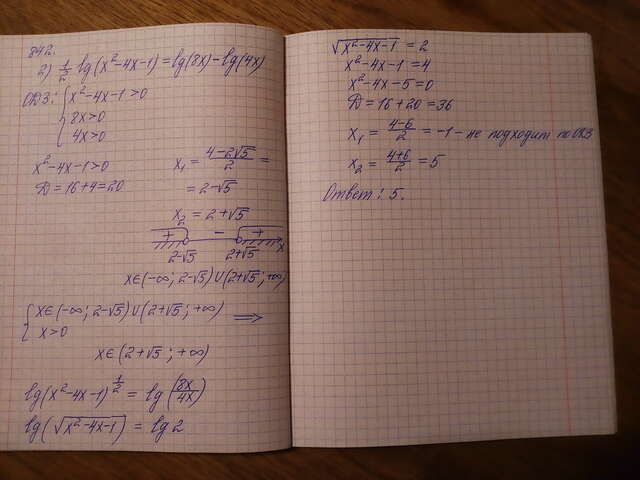 842.
2) 1/2 lg(x²-4x-1) = lg(8x) - lg(4x)
ОДЗ: { x²-4x-1>0
8x>0
4x>0
x²-4x-1>0
D = 16+4=20
x₁ = (4-2√5)/2 =
= 2-√5
x₂ = 2+√5
+ - + x
2-√5 2+√5
x∈(-∞; 2-√5)∪(2+√5; +∞)
{ x∈(-∞; 2-√5)∪(2+√5; +∞) ⟹
x>0
x∈(2+√5; +∞)
lg(x²-4x-1)^(1/2) = lg(8x/4x)
lg(√(x²-4x-1)) = lg 2
√(x²-4x-1) = 2
x²-4x-1 = 4
x²-4x-5=0
D = 16+20 = 36
x₁ = (4-6)/2 = -1 - не подходит по ОДЗ
x₂ = (4+6)/2 = 5
Ответ: 5.